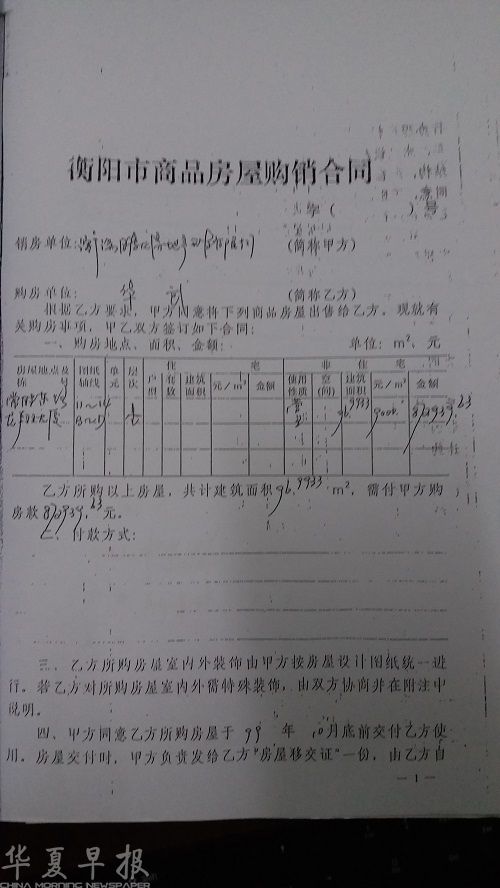 衡阳市商品房屋购销合同
字( )号
销房单位: (简称甲方)
购房单位: 华 (简称乙方)
根据乙方要求，甲方同意将下列商品房屋出售给乙方。现就有
关购房事项，甲乙双方签订如下合同:
一、购房地点、面积、金额: 单位: m²、元
住 宅 非 住 宅
房屋地点及 栋 号 图纸轴线 单元 层次 户型 套数 建筑面积 元/m² 金额 使用性质 空(间) 建筑面积 元/m² 金额
11～14 96.9933 9000
乙方所购以上房屋，共计建筑面积96.9933m²，需付甲方购
房款872939.63元。
二、付款方式:
三、乙方所购房屋室内外装饰由甲方按房屋设计图纸统一进
行。若乙方对所购房屋室内外需特殊装饰，由双方协商并在附注中
说明。
四、甲方同意乙方所购房屋于 99 年 10月底前交付乙方使
用。房屋交付时，甲方负责发给乙方"房屋移交证"一份，由乙方自
—1—
华夏早报
CHINA MORNING NEWSPAPER